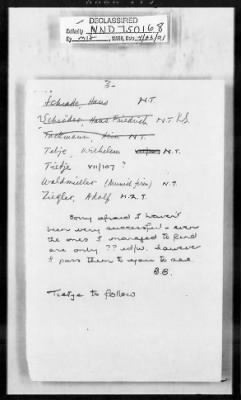 DECLASSIFIED
Authority NND750168
3_
Schrade, Hans N.T.
Schröder, Hans Friedrich N.T. R.S.
N.T.
Tetje, Wilhelm N.T.
Tietje VII/107 ?
Waldmüller (Munich firm) N.T.
Ziegler, Adolf N.R.T.
Sorry afraid I haven't
been very successful - even
the ones I managed to find
are only ?? However
I pass them to you to see.
B.B.
Tietje to follow